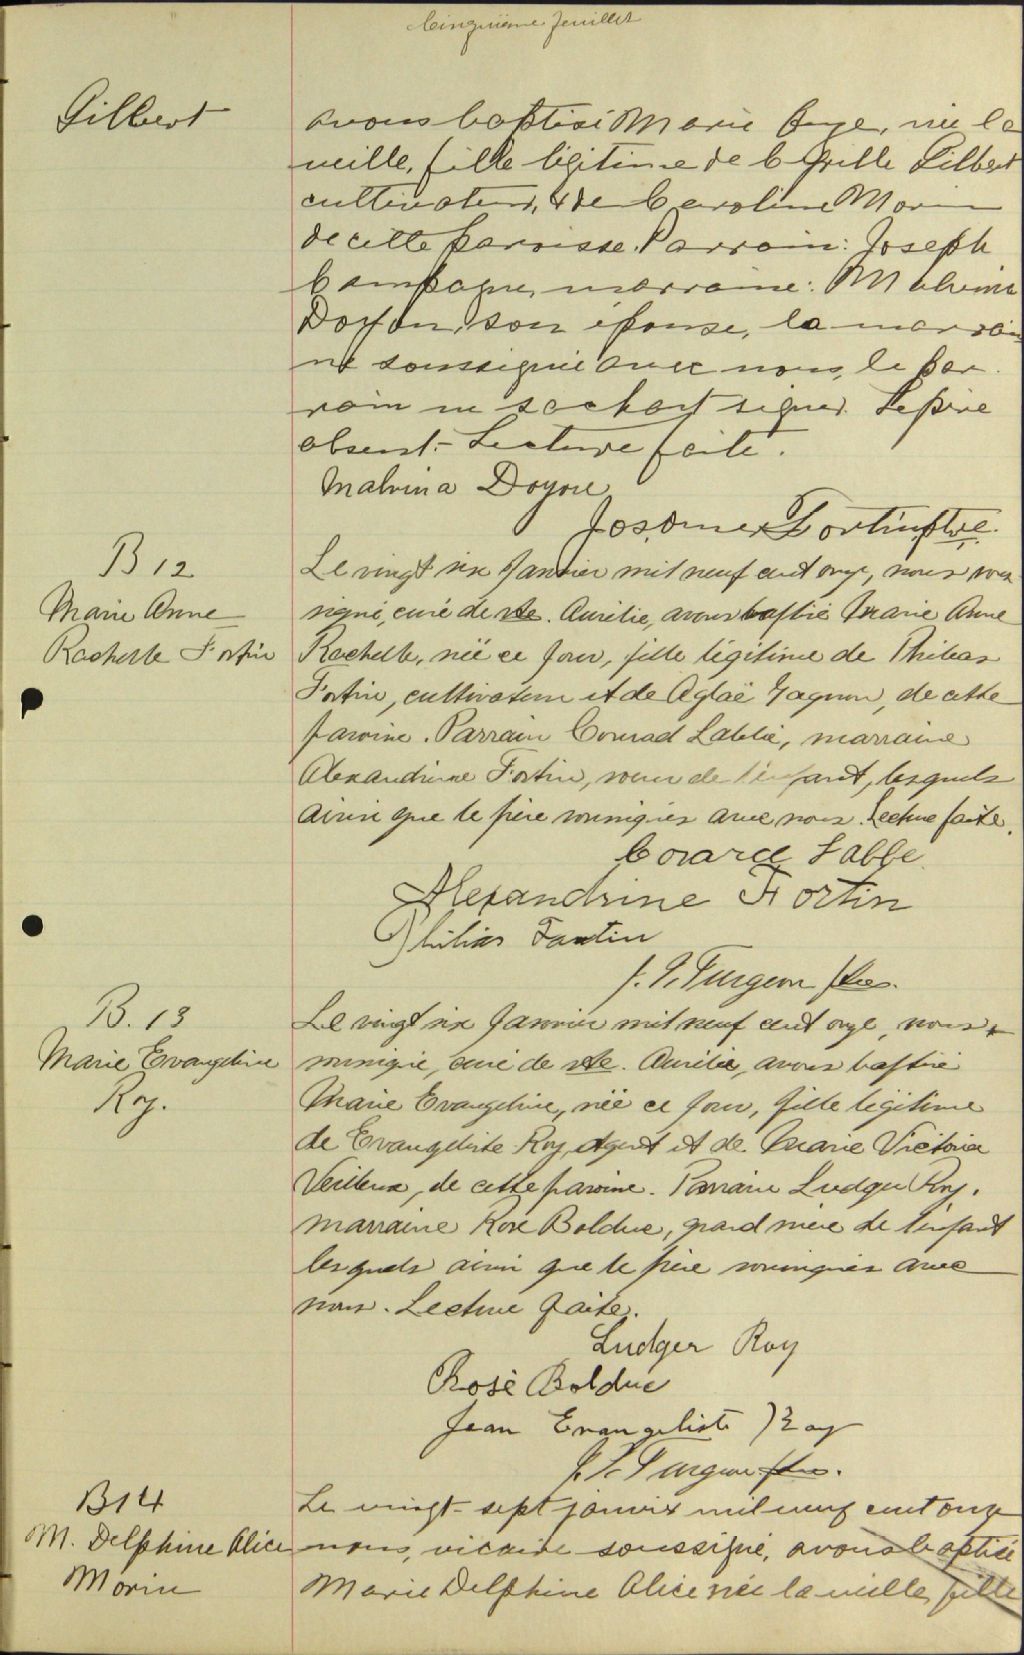 Cinquième feuillet
Gilbert
avons baptisé Marie , née la
veille, fille légitime de Gilbert
cultivateur, & de Caroline Morin
de cette paroisse. Parrain: Joseph
Campagne, marraine: Malvina
Doyon, son épouse, la marrai
ne soussignée avec nous, le par
rain ne sachant signer. Le père
absent.- Lecture faite.
Malvina Doyon
Jos. Omer Fortin ptre.
B 12
Marie Anne
Rachelle Fortin
Le vingt six Janvier mil neuf cent onze, nous sous
signé, curé de Ste. Aurélie, avons baptisé Marie Anne
Rachelle, née ce jour, fille légitime de Philias
Fortin, cultivateur et de Aglaë Gagnon, de cette
paroisse. Parrain Conrad Labbé, marraine
Alexandrine Fortin, soeur de l'enfant, lesquels
ainsi que le père soussignés avec nous. Lecture faite.
Conrad Labbe
Alexandrine Fortin
Philias Fortin
J. P. Turgeon ptre.
B. 13
Marie Evangeline
Roy.
Le vingt six Janvier mil neuf cent onze, nous
soussigné, curé de Ste. Aurélie, avons baptisé
Marie Evangeline, née ce jour, fille légitime
de Evangeliste Roy, Agent et de Marie Victoria
Veilleux, de cette paroisse. Parrain Ludger Roy,
marraine Rose Bolduc, grand mère de l'enfant
lesquels ainsi que le père soussignés avec
nous. Lecture faite.
Ludger Roy
Rose Bolduc
Jean Evangeliste Roy
J. P. Turgeon ptre.
B14
M. Delphine Alice
Morin
Le vingt-sept janvier mil neuf cent onze
nous, vicaire soussigné, avons baptisé
Marie Delphine Alice née la veille, fille